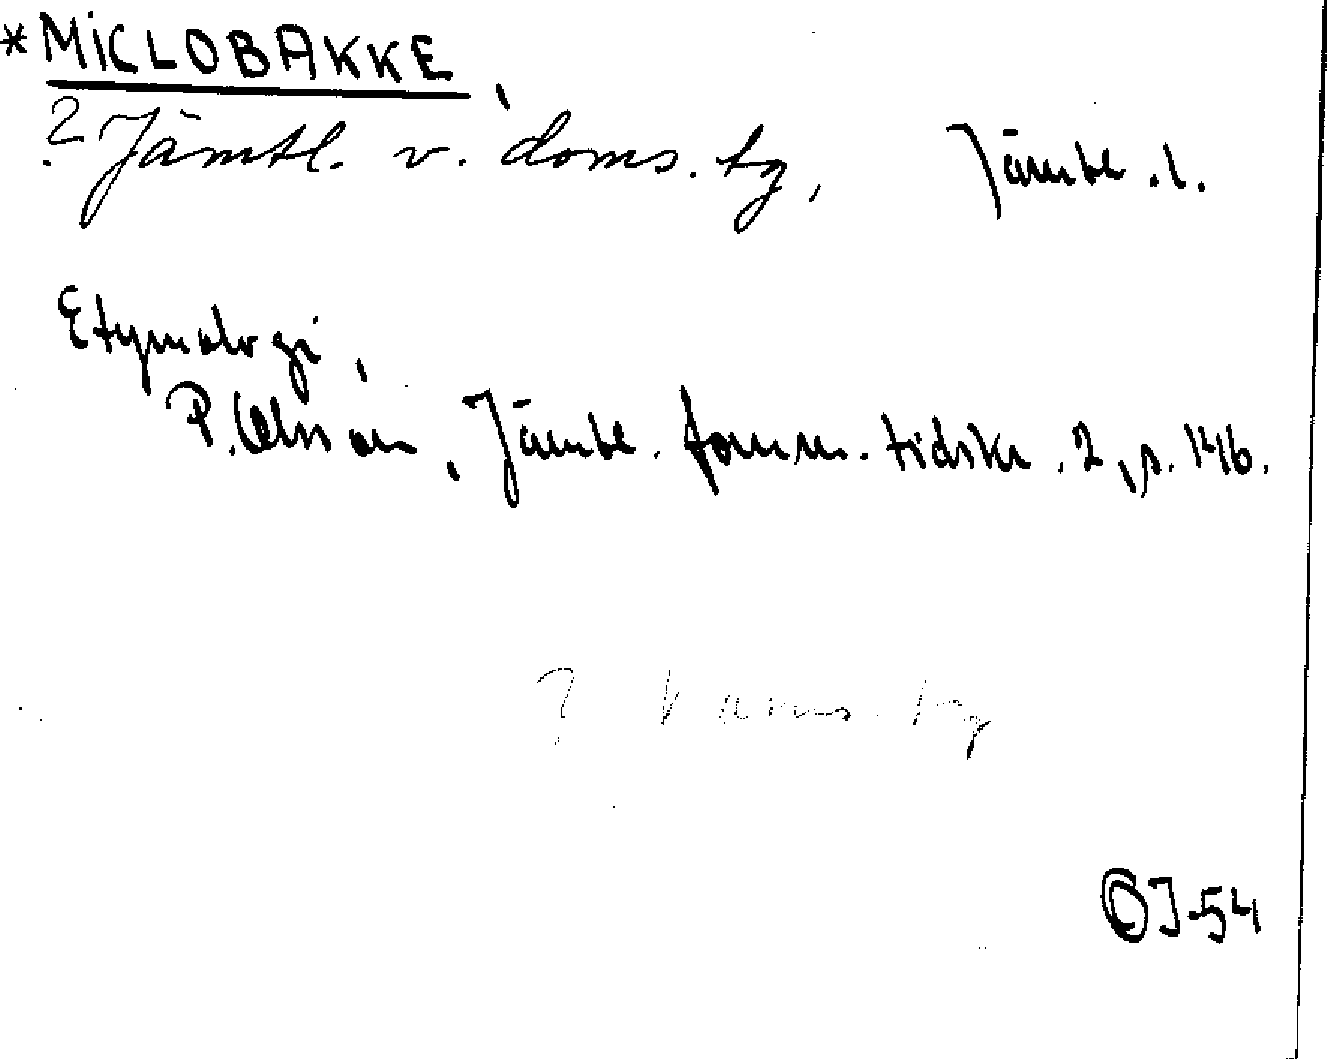 *MICLOBAKKE,
? Jämtl. v. doms. tg, Jämtl. l.
Etymologi,
P. Olsson, Jämtl. fornm. tidskr. 2, s. 146.
? doms. tg
OJ-54